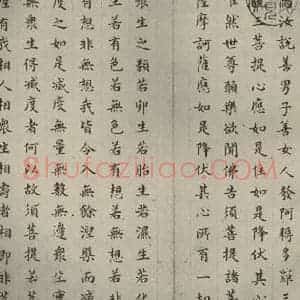 男子善女人發阿耨多羅三
三菩提心應如是住如是降伏其
唯然世尊願樂欲聞佛告須菩提諸菩
薩摩訶薩應如是降伏其心所有一切
眾生之類若卵生若胎生若濕生若化
生若有色若無色若有想若無想若非
有想非無想我皆令入無餘涅槃而滅
度之如是滅度無量無數無邊眾生實
無眾生得滅度者何以故須菩提若菩
有我相人相眾生相壽者相即非
Shufaziliao.com